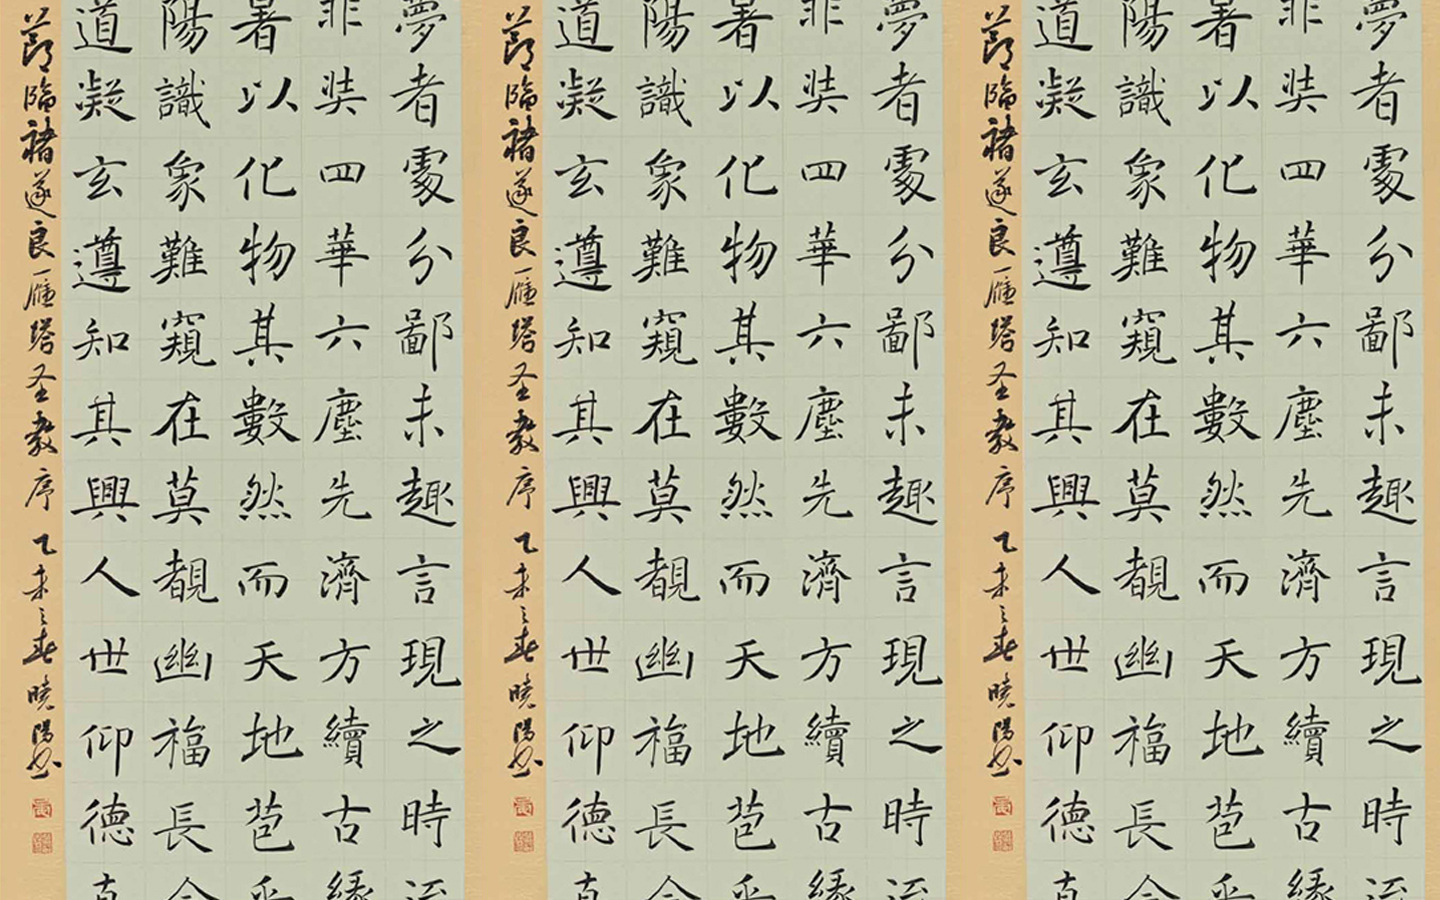 夢者處分鄙未趣言現之時
非奘四華六塵先濟方續古緣
暑以化物其數然而天地苞乎
陽識象難窺在莫覩幽福長
道凝玄遵知其興人世仰德
節臨褚遂良雁塔圣教序乙未之春曉陽書
夢者處分鄙未趣言現之時
非奘四華六塵先濟方續古緣
暑以化物其數然而天地苞乎
陽識象難窺在莫覩幽福長
道凝玄遵知其興人世仰德
節臨褚遂良雁塔圣教序乙未之春曉陽書
夢者處分鄙未趣言現之時
非奘四華六塵先濟方續古緣
暑以化物其數然而天地苞乎
陽識象難窺在莫覩幽福長
道凝玄遵知其興人世仰德
節臨褚遂良雁塔圣教序乙未之春曉陽書